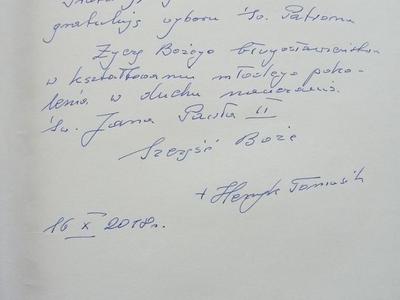 gratuluję wyboru Św. Patrona
Życzę Bożego błogosławieństwa
w kształtowaniu młodego poko-
lenia w duchu nauczania
Św. Jana Pawła II
Szczęść Boże
+ Henryk Tomasik
16 X 2018r.